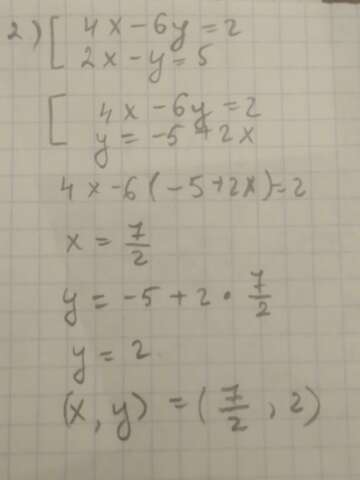 2) [ 4x - 6y = 2
2x - y = 5
[ 4x - 6y = 2
y = -5 + 2x
4x - 6(-5 + 2x) = 2
x = 7/2
y = -5 + 2 · 7/2
y = 2
(x, y) = (7/2, 2)